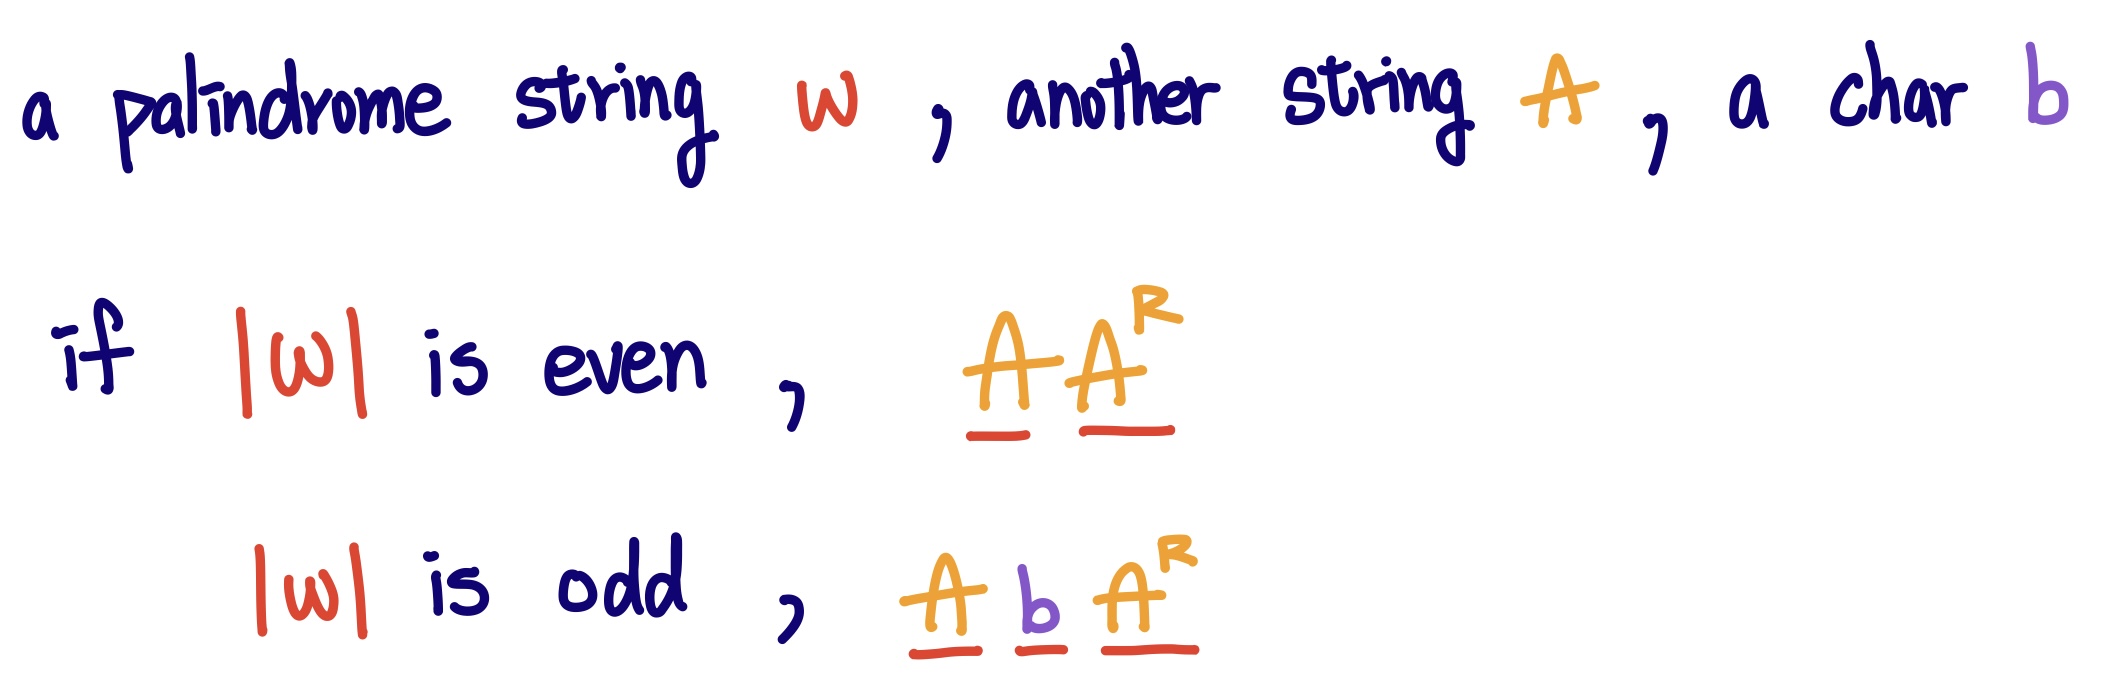 a palindrome string w , another string A , a char b
if |w| is even , A Aᴿ
|w| is odd , A b Aᴿ